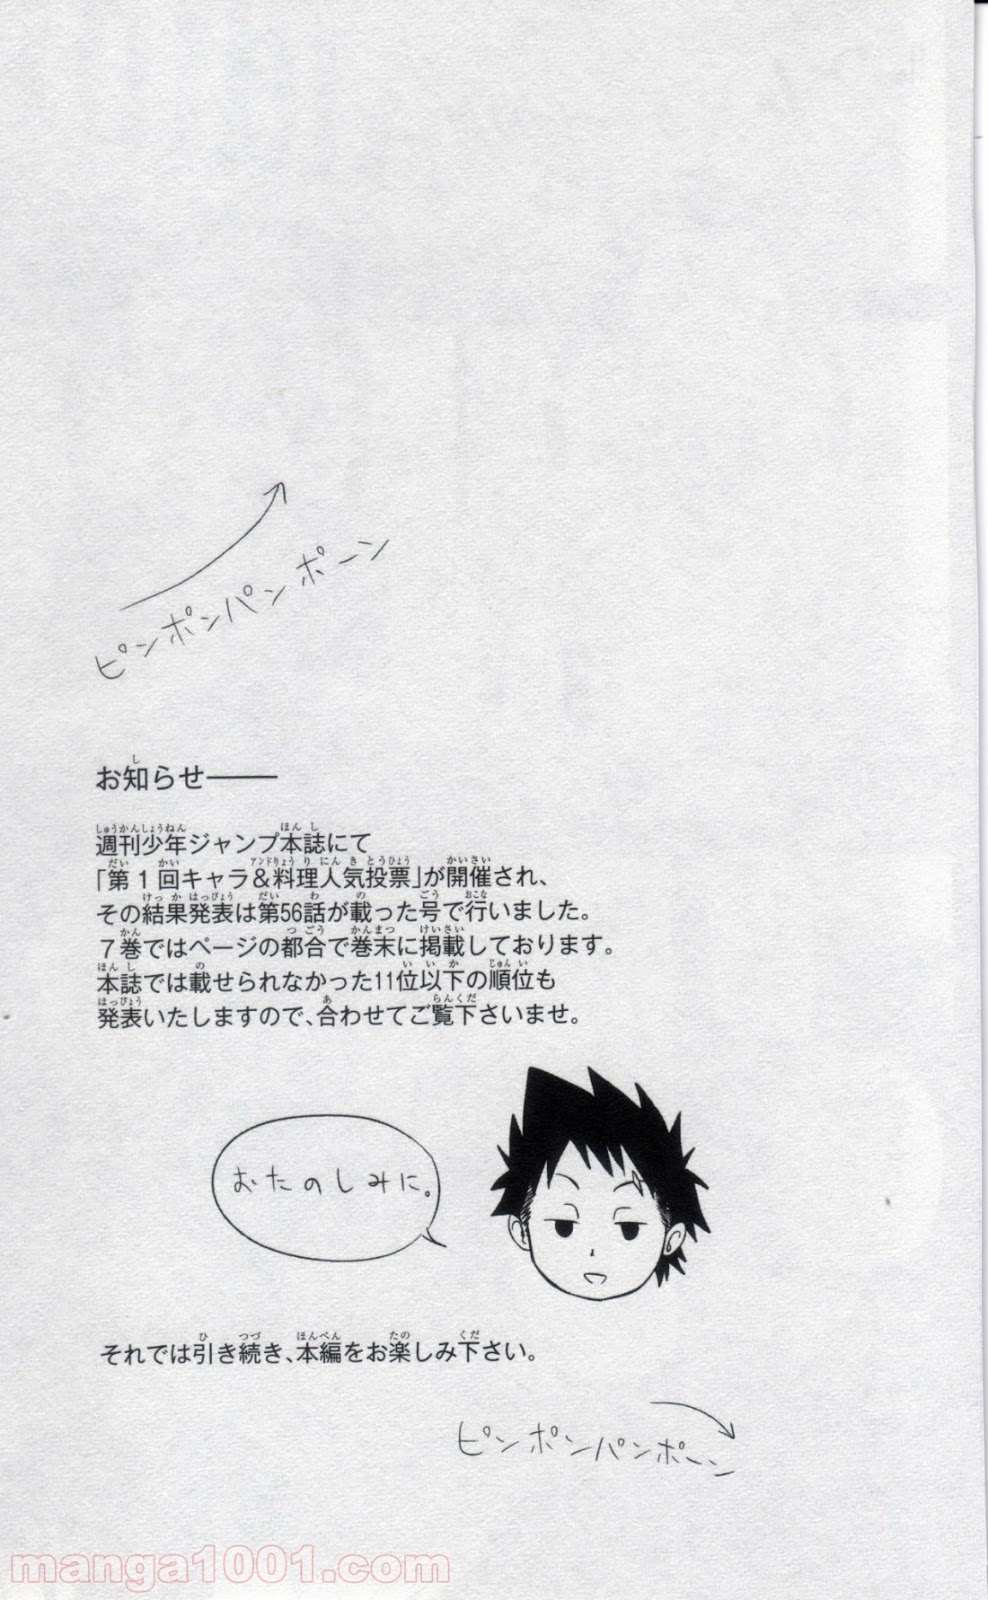 ピンポンパンポーン
お知らせ――
週刊少年ジャンプ本誌にて
「第1回キャラ&料理人気投票」が開催され、
その結果発表は第56話が載った号で行いました。
7巻ではページの都合で巻末に掲載しております。
本誌では載せられなかった11位以下の順位も
発表いたしますので、合わせてご覧下さいませ。
おたのしみに。
それでは引き続き、本編をお楽しみ下さい。
ピンポンパンポーン
manga1001.com